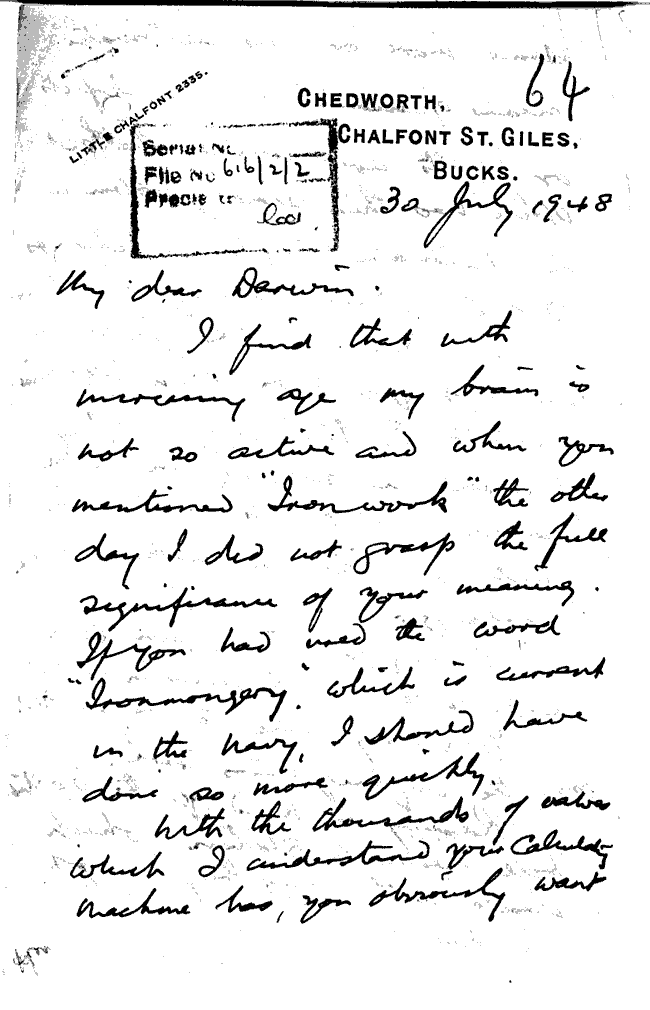 64
LITTLE CHALFONT 2335.
CHEDWORTH,
CHALFONT ST. GILES,
BUCKS.
Serial No
File No 616/2/2
30 July 1948
My dear Darwin.
I find that with
increasing age my brain is
not so active and when you
mentioned "Iron work" the other
day I did not grasp the full
significance of your meaning.
If you had used the word
"Ironmongery", which is current
in the Navy, I should have
done so more quickly.
With the thousands of valves
which I understand your Calculating
machine has, you obviously want